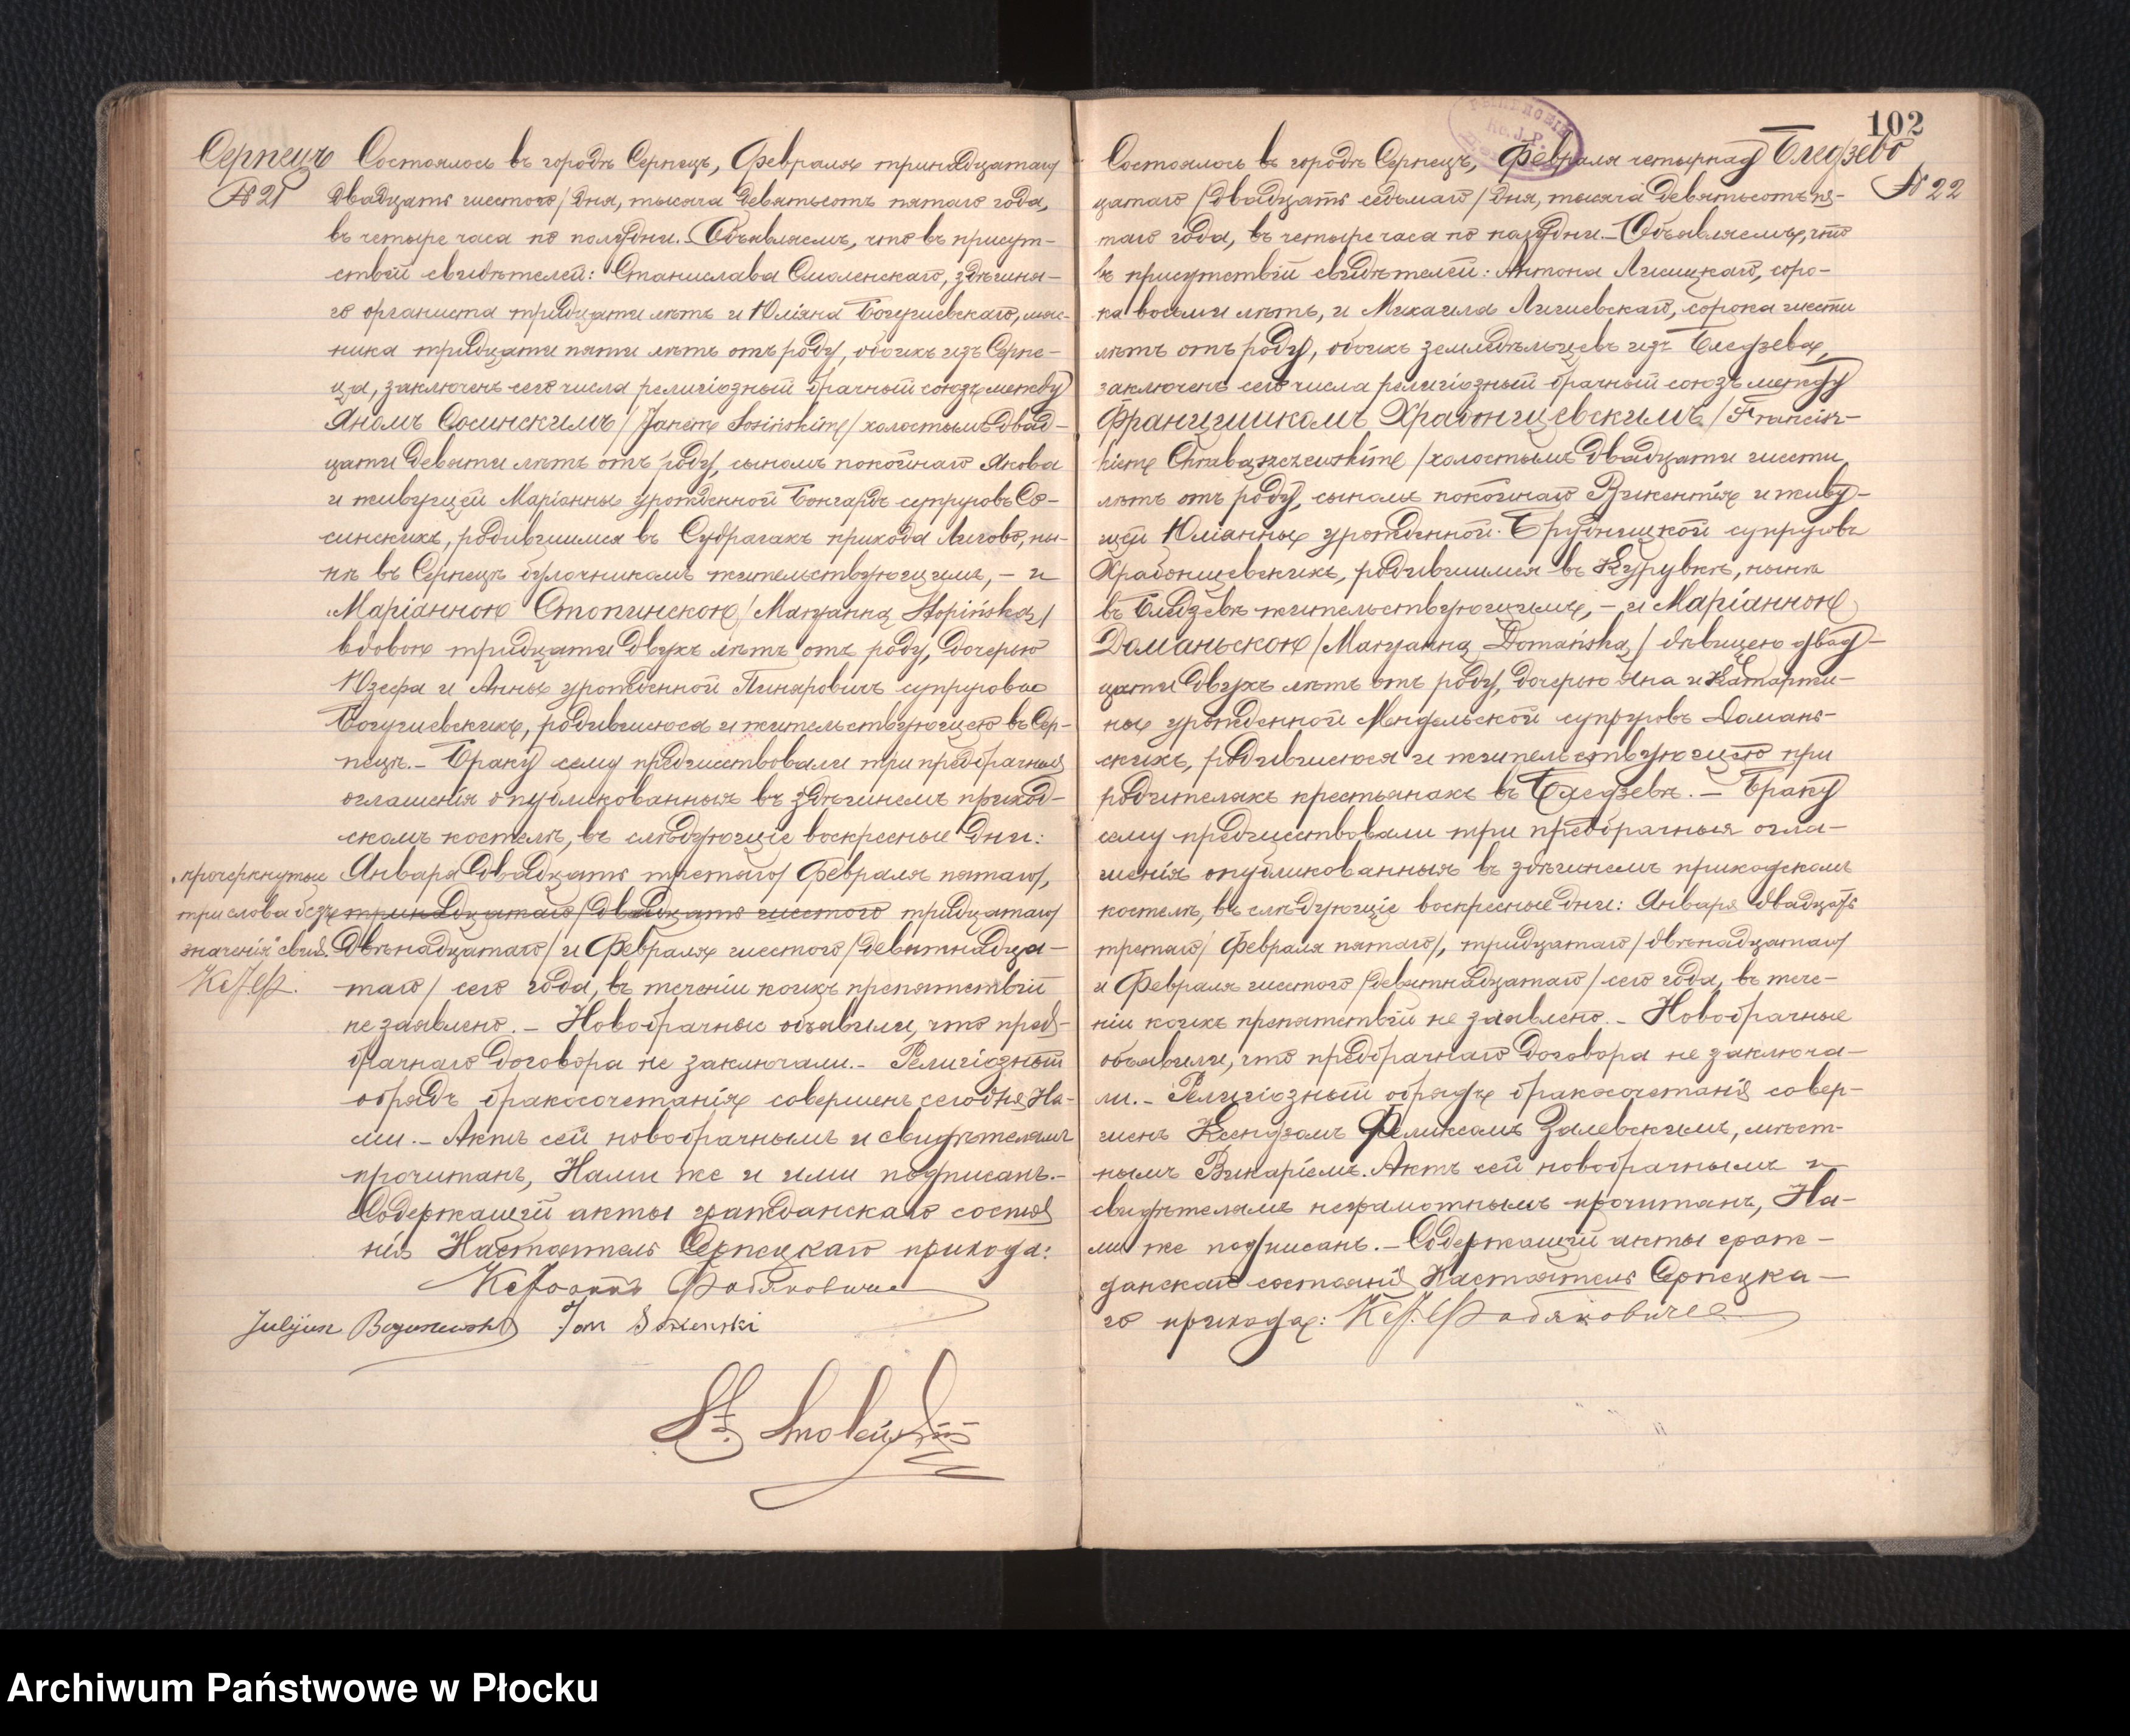 Серпецъ
№ 21
Состоялось въ городѣ Серпецѣ, Февраля тринадцатаго/
двадцать шестого/ дня, тысяча девятьсотъ пятаго года,
въ четыре часа по полудни. Объявляемъ, что въ присут-
ствіи свидѣтелей: Станислава Смоленскаго, здѣшня-
го органиста тридцати лѣтъ и Юліана Богушевскаго, мяс-
ника тридцати пяти лѣтъ отъ роду, обоихъ изъ Серпе-
ца, заключенъ сего числа религіозный брачный союзъ между
Яномъ Сосинскимъ /Janem Sosińskim/ холостымъ двад-
цати девяти лѣтъ отъ роду, сыномъ покойнаго Якова
и живущей Маріанны урожденной Бонгардъ супруговъ Со-
синскихъ, родившимся въ Судрагахъ прихода Лигово, ны-
нѣ въ Серпецѣ булочникомъ жительствующимъ, – и
Маріанною Стопинскою /Maryanną Stopińską/
вдовою тридцати двухъ лѣтъ отъ роду, дочерью
Юзефа и Анны урожденной Пинаровичъ супруговъ
Богушевскихъ, родившеюся и жительствующею въ Сер-
пецѣ. – Браку сему предшествовали три предбрачныя
оглашенія опубликованныя въ здѣшнемъ приход-
скомъ костелѣ, въ слѣдующіе воскресные дни:
Января двадцать третьяго/ Февраля пятаго/,
тринадцатаго/двадцать шестого тридцатаго/
двѣнадцатаго/ и Февраля шестого /девятнадца-
таго/ сего года, въ теченіи коихъ препятствій
не заявлено. – Новобрачные объявили, что пред-
брачнаго договора не заключали. – Религіозный
обрядъ бракосочетанія совершенъ сегодня На-
ми. – Актъ сей новобрачнымъ и свидѣтелямъ
прочитанъ, Нами же и ими подписанъ. –
Содержащій акты гражданскаго состоя
нія Настоятель Серпецкаго прихода:
„прочеркнутые
три слова безъ
значенія" свид.
Julijan Boguszewski Jan Sosienski
102
Бледзево
№ 22
Состоялось въ городѣ Серпецѣ, Февраля четырнад
цатаго /двадцать седьмаго/ дня, тысяча девятьсотъ пя-
таго года, въ четыре часа по полудни. – Объявляемъ, что
въ присутствіи свидѣтелей: Антона Лисицкаго, соро-
ка восьми лѣтъ, и Михаила Лишевскаго, сорока шести
лѣтъ отъ роду, обоихъ земледѣльцевъ изъ Бледзева,
заключенъ сего числа религіозный брачный союзъ между
Францишкомъ Храбонщевскимъ /Francisz-
kiem Chrabąszczewskim/ холостымъ двадцати шести
лѣтъ отъ роду, сыномъ покойнаго Викентія и живу-
щей Юліанны урожденной Брудницкой супруговъ
Храбонщевскихъ, родившимся въ Курувкѣ, нынѣ
въ Бледзевѣ жительствующимъ, – и Маріанною
Доманьскою /Maryanną Domańską/ дѣвицею двад-
цати двухъ лѣтъ отъ роду, дочерью Яна и Катаржи-
ны урожденной Мендельской супруговъ Домань-
скихъ, родившеюся и жительствующею при
родителяхъ крестьянахъ въ Бледзевѣ. – Браку
сему предшествовали три предбрачныя огла-
шенія опубликованныя въ здѣшнемъ приходскомъ
костелѣ, въ слѣдующіе воскресные дни: Января двадцать
третьяго/ Февраля пятаго/, тридцатаго /двѣнадцатаго/
и Февраля шестого /девятнадцатаго/ сего года, въ тече-
ніи коихъ препятствій не заявлено. – Новобрачные
объявили, что предбрачнаго договора не заключа-
ли. – Религіозный обрядъ бракосочетанія совер-
шенъ Ксендзомъ Феликсомъ Залевскимъ, мѣст-
нымъ Викаріемъ. Актъ сей новобрачнымъ и
свидѣтелямъ неграмотнымъ прочитанъ, На-
ми же подписанъ. – Содержащій акты граж-
данскаго состоянія Настоятель Серпецка-
го прихода:
Archiwum Państwowe w Płocku